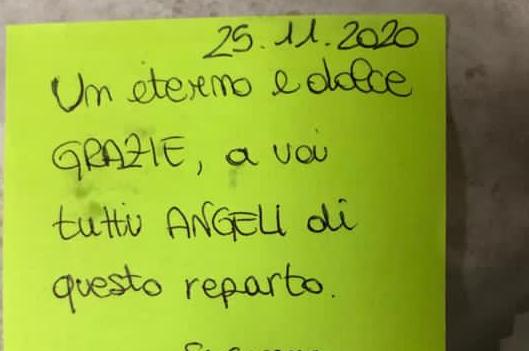 25.11.2020
Un eterno e dolce
GRAZIE, a voi
tutti ANGELI di
questo reparto.